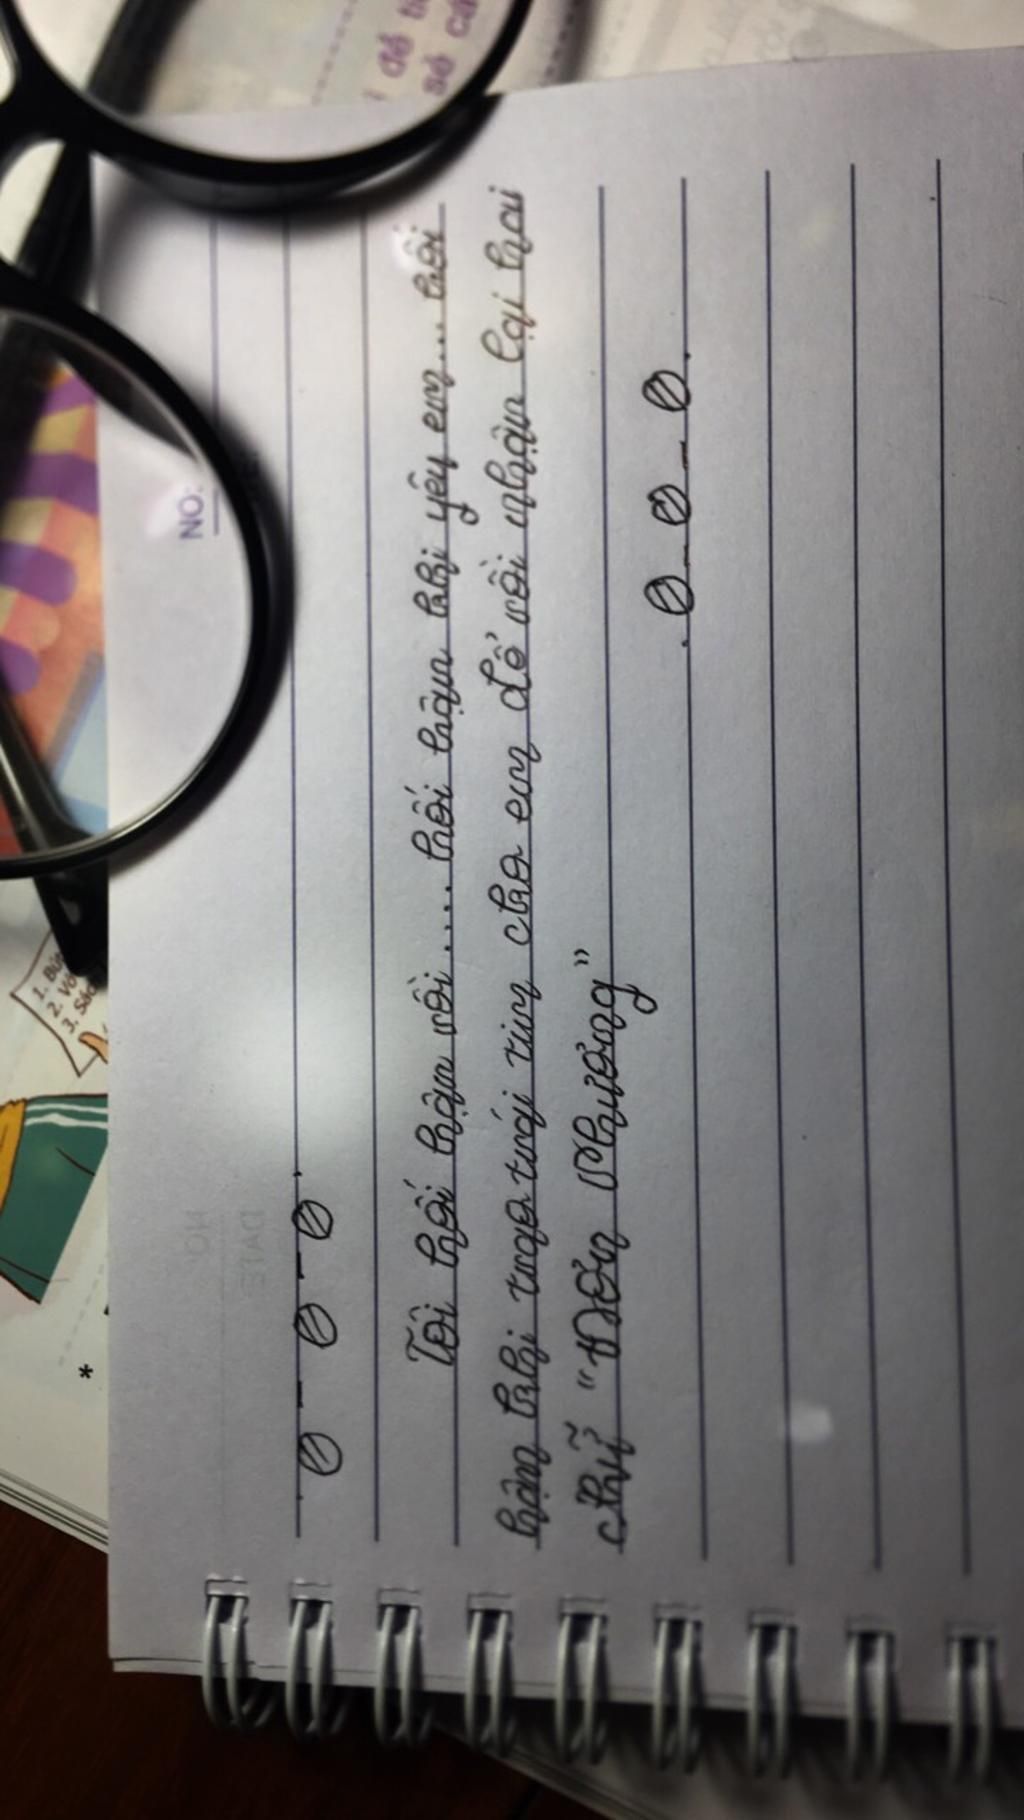 đồ
số
NO:
1. Bú
2. Vở
3. Sác
*
Tôi hối hận rồi..... hối hận khi yêu em... hối
hận khi trao trái tim cho em để rồi nhận lại hai
chữ "Đơn Phương"